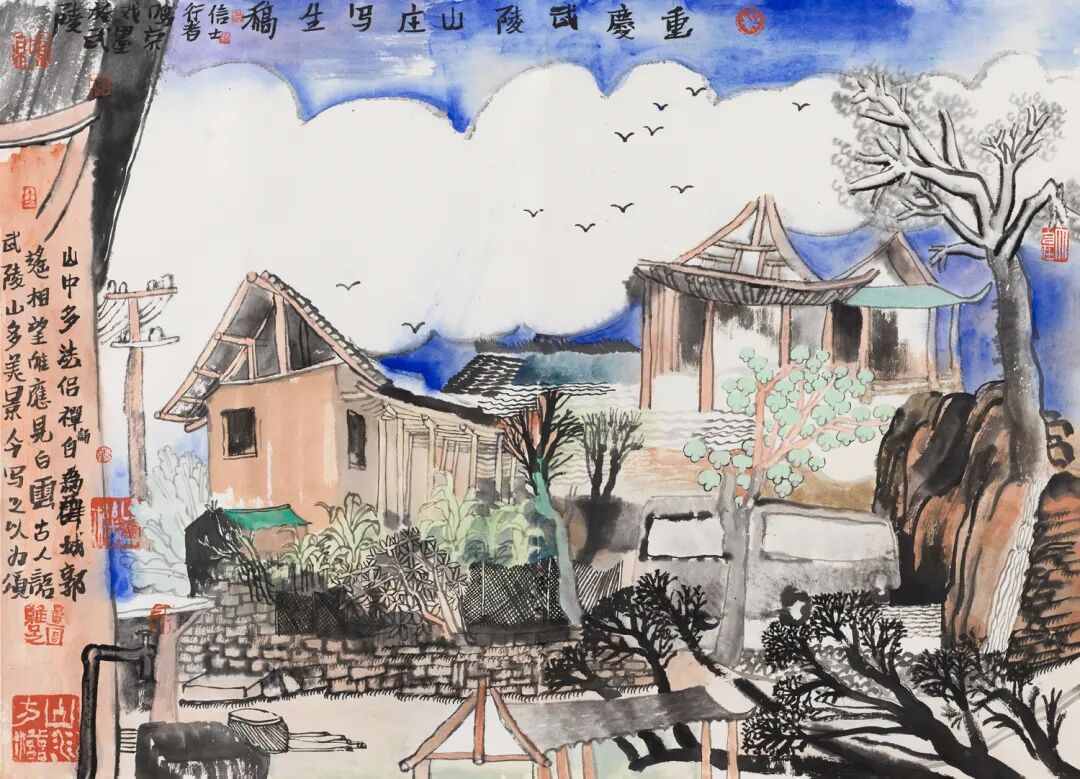 重慶武陵山庄写生稿
信士
行者
戏墨
於武
陵
山中多法侣禪誦自為群城郭
遙相望唯應見白雲古人語
武陵山多美景今写之以为頌